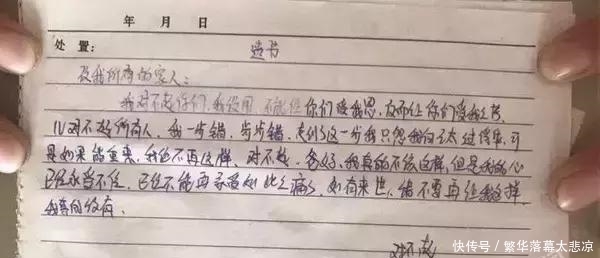 年 月 日
处置： 遗书
及我所有的家人：
我对不起你们，我没用，不能给你们受我恩，反而让你们受我之苦，
对不起所有人，我一步错，步步错，走到了这一步我只怨我自己太过，可
是如果能重来，我绝不再这样，对不起，爸妈，我真的不该这样，但是我的心
已经承当不住，已经不能再承受如此之痛了，如有来世，请不要再让我这样，
我真的没有
对不起
快传号／繁华落幕大悲凉